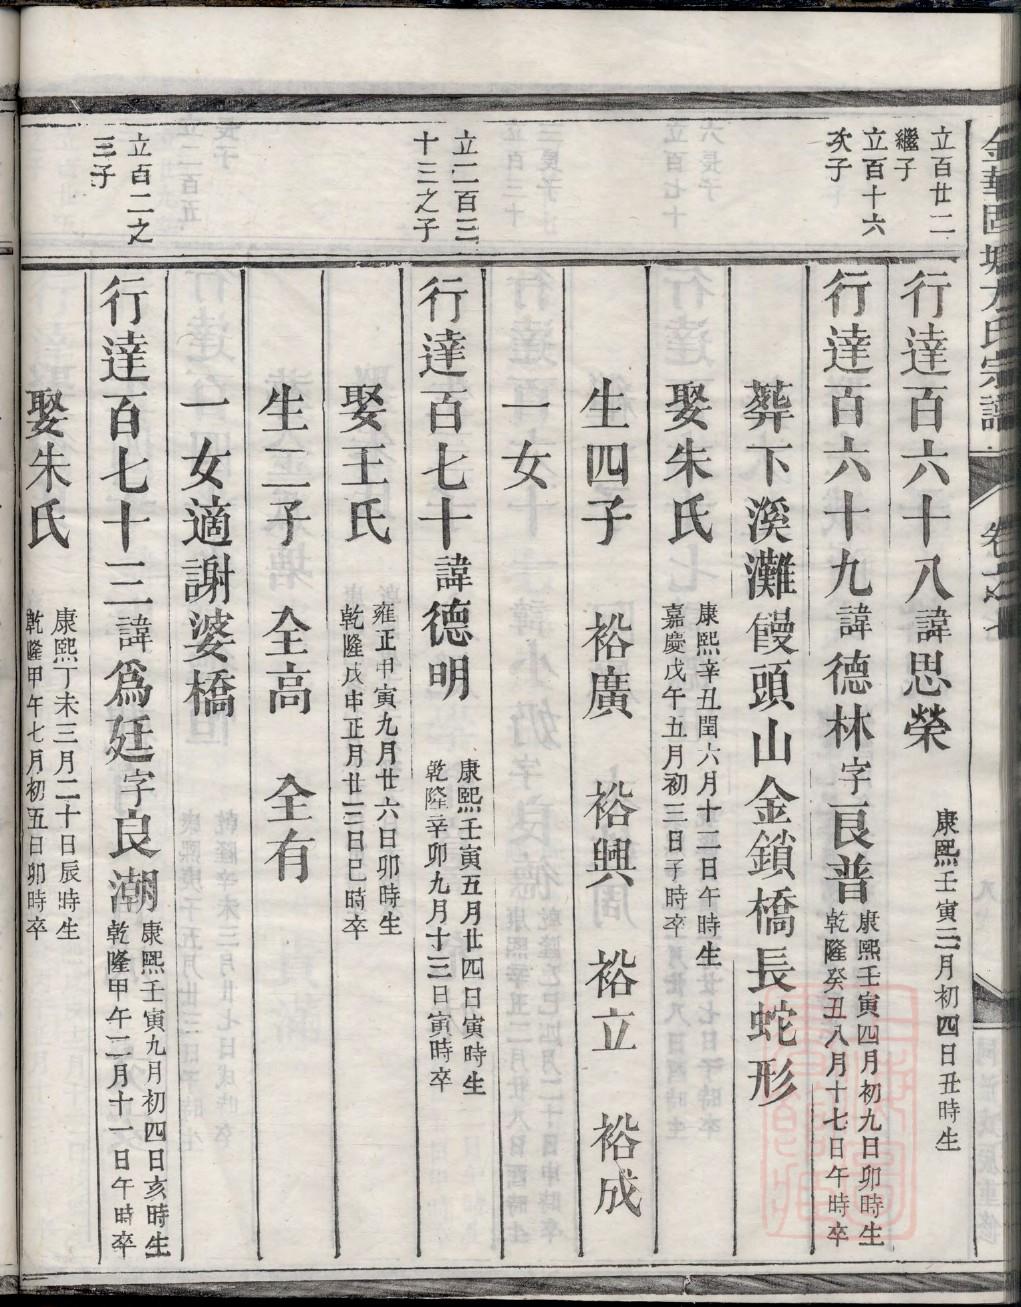 立百廿二
繼子
行達百六十八諱思榮
康熙壬寅三月初四日丑時生
立百十六
次子
行達百六十九諱德林字良普
康熙壬寅四月初九日卯時生
乾隆癸丑八月十七日午時卒
葬下溪灘饅頭山金鎖橋長蛇形
娶朱氏
康熙辛丑閏六月十二日午時生
嘉慶戊午五月初三日子時卒
生四子 裕廣 裕興 裕立 裕成
一女
立二百三
十三之子
行達百七十諱德明
康熙壬寅五月廿四日寅時生
乾隆辛卯九月十三日寅時卒
娶王氏
雍正甲寅九月廿六日卯時生
乾隆戊申正月廿三日巳時卒
生二子 全高 全有
一女適謝婆橋
立百二之
三子
行達百七十三諱爲廷字良潮
康熙壬寅九月初四日亥時生
乾隆甲午二月十一日午時卒
娶朱氏
康熙丁未三月二十日辰時生
乾隆甲午七月初五日卯時卒